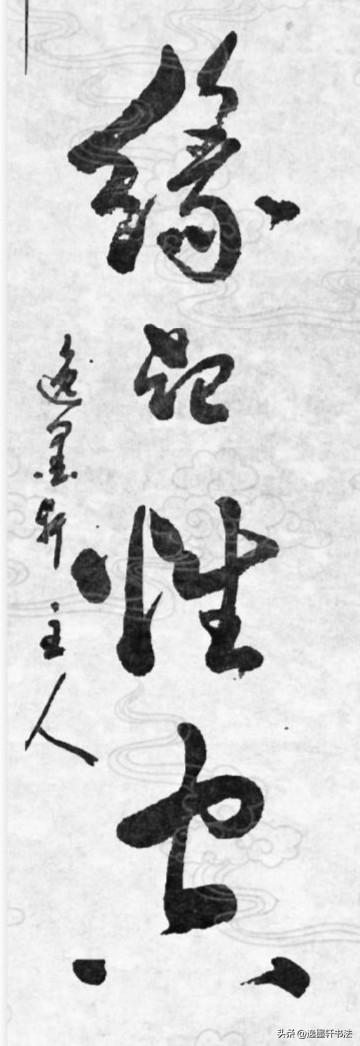 緣起性空
逸墨軒主人
头条 @逸墨轩书法